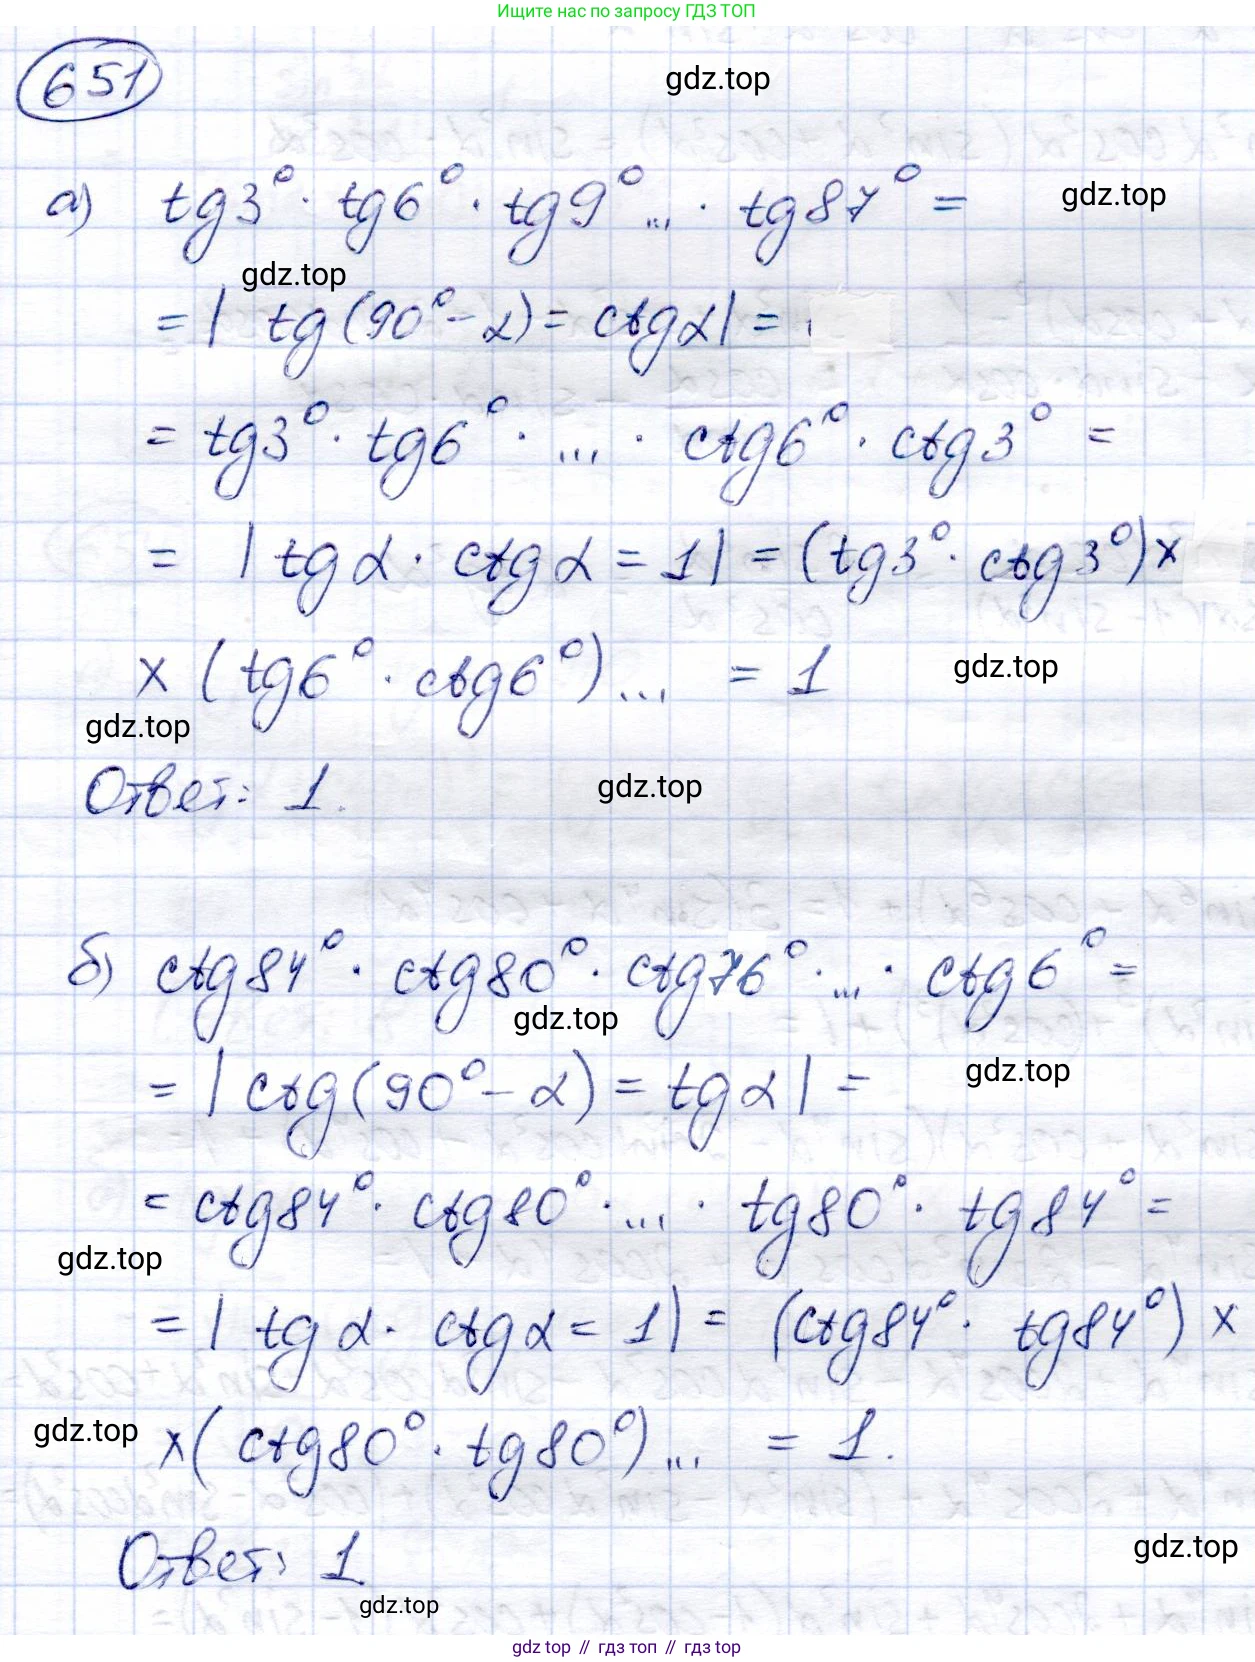 Ищите нас по запросу ГДЗ ТОП
651
gdz.top
а) tg3° · tg6° · tg9° ... · tg87° =
gdz.top
gdz.top
= | tg(90° - α) = ctgα | =
= tg3° · tg6° · ... · ctg6° · ctg3° =
= | tgα · ctgα = 1 | = (tg3° · ctg3°) ×
× (tg6° · ctg6°) ... = 1
gdz.top
gdz.top
Ответ: 1.
gdz.top
б) ctg84° · ctg80° · ctg76° · ... · ctg6° =
gdz.top
= | ctg(90° - α) = tgα | =
gdz.top
= ctg84° · ctg80° · ... · tg80° · tg84° =
gdz.top
= | tgα · ctgα = 1 | = (ctg84° · tg84°) ×
gdz.top
× (ctg80° · tg80°) ... = 1.
gdz.top
Ответ: 1
gdz.top
gdz top // гдз топ // gdz top